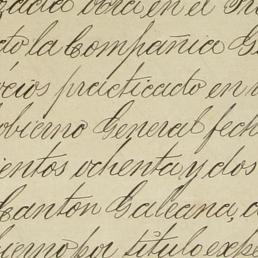 zada obra en el
do la Compañia G
ocios practicado en
obierno General fech
ientos ochenta y dos
Canton Galeana, d
bierno por título expe